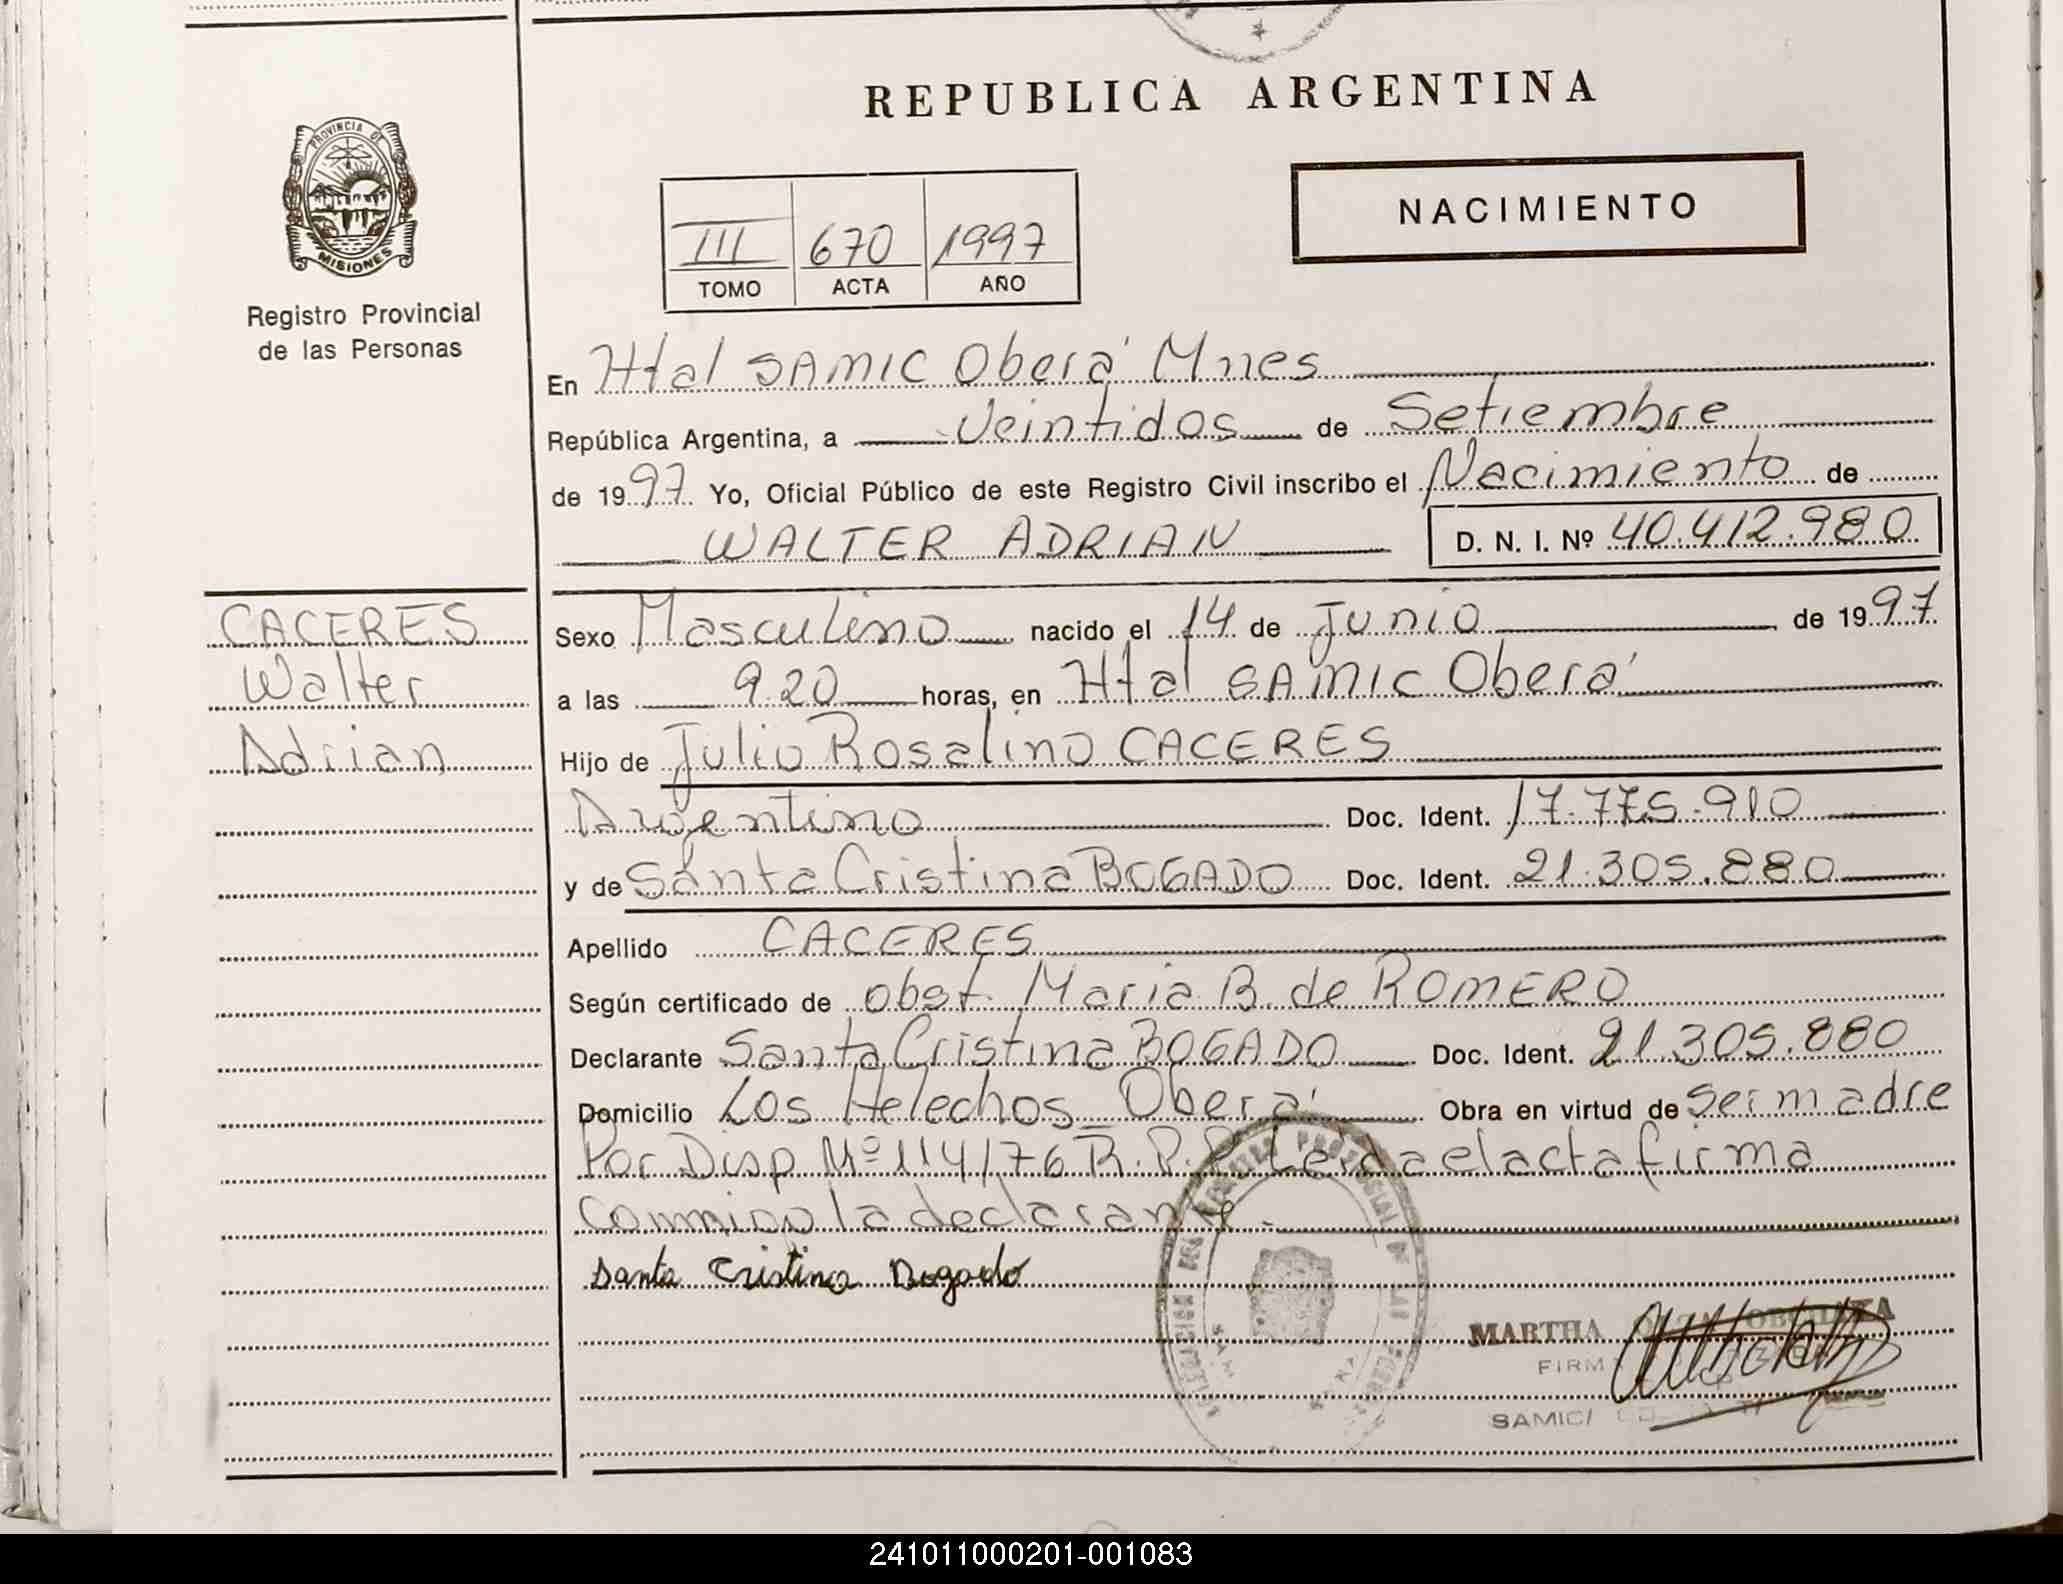 REPUBLICA ARGENTINA
PROVINCIA DE
MISIONES
Registro Provincial
de las Personas
III 670 1997
TOMO ACTA AÑO
NACIMIENTO
En Htal SAMIC Oberá Mnes
República Argentina, a Veintidos de Setiembre
de 1997 Yo, Oficial Público de este Registro Civil inscribo el Nacimiento de
WALTER ADRIAN D. N. I. Nº 40.412.980
CACERES
Walter
Adrian
Sexo Masculino nacido el 14 de Junio de 1997
a las 9.20 horas, en Htal SAMIC Oberá
Hijo de Julio Rosalino CACERES
Argentino Doc. Ident. 17.775.910
y de Santa Cristina BOGADO Doc. Ident. 21.305.880
Apellido CACERES
Según certificado de obst. Maria B. de ROMERO
Declarante Santa Cristina BOGADO Doc. Ident. 21.305.880
Domicilio Los Helechos Oberá Obra en virtud de ser madre
Por Disp Nº 114/76 R.P.P. Leida el acta firma
conmigo la declarante.
Santa Cristina Bogado
MARTHA
FIRMA
SAMIC
241011000201-001083